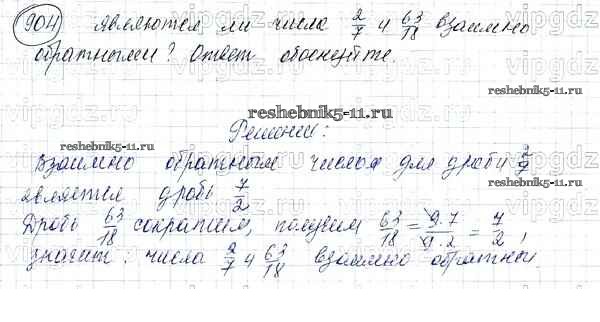 904 являются ли числа 2/7 и 63/18 взаимно
обратными? Ответ обоснуйте.
reshebnik5-11.ru
reshebnik5-11.ru
Решение:
Взаимно обратным числом для дроби 2/7
является дробь 7/2
Дробь 63/18 сократим, получим 63/18 = 9·7/9·2 = 7/2,
значит: числа 2/7 и 63/18 взаимно обратны.